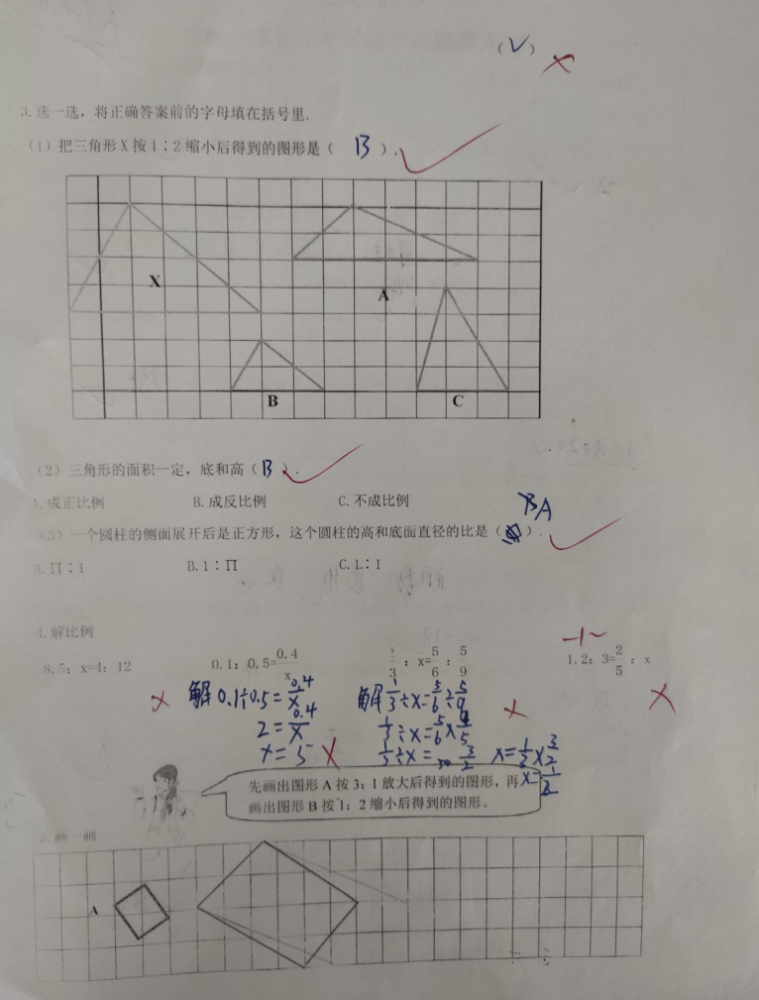 (√)
3.选一选，将正确答案前的字母填在括号里.
(1) 把三角形 X 按 1∶2 缩小后得到的图形是（ B ）.
X
A
B
C
(2) 三角形的面积一定，底和高（ B ）.
A.成正比例 B.成反比例 C.不成比例
BA
(3) 一个圆柱的侧面展开后是正方形，这个圆柱的高和底面直径的比是（ ）.
A.∏∶1 B.1∶∏ C.1∶1
4.解比例
8.5：x=4：12 0.1：0.5=0.4/x 1/3：x=5/6：5/9 1.2：3=2/5：x
解 0.1÷0.5=0.4/x 解 1/3÷x=5/6÷5/9
2=0.4/x 1/3÷x=5/6×9/5
x=5 1/3÷x=3/2 x=1/2×3/2
x=1/2
先画出图形 A 按 3：1 放大后得到的图形，再
画出图形 B 按 1：2 缩小后得到的图形。
5.画一画
A